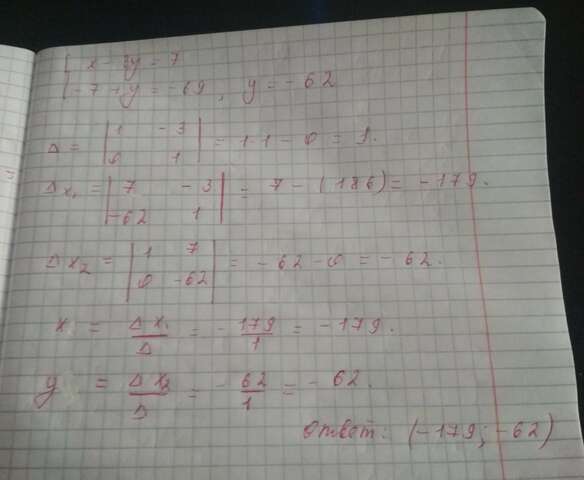 { x - 3y = 7
{ -7 + y = -69, y = -62
Δ = | 1 -3 | = 1·1 - 0 = 1.
| 0 1 |
Δx₁ = | 7 -3 | = 7 - (186) = -179.
| -62 1 |
Δx₂ = | 1 7 | = -62 - 0 = -62.
| 0 -62 |
x = Δx₁/Δ = -179/1 = -179.
y = Δx₂/Δ = -62/1 = -62.
Ответ: (-179; -62)